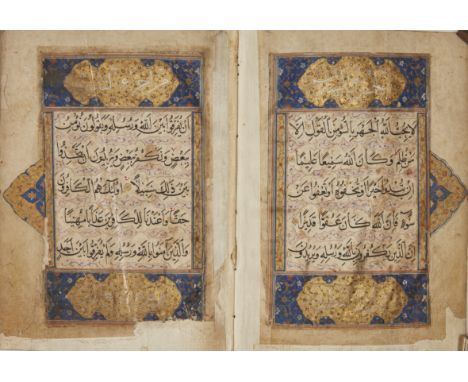 لا يحب الله الجهر بالسوء من القول الا
من ظلم وكان الله سميعا عليما
ان تبدوا خيرا او تخفوه او تعفوا عن
سوء فان الله كان عفوا قديرا
ان الذين يكفرون بالله ورسله ويريدون
ان يفرقوا بين الله ورسله ويقولون نؤمن
ببعض ونكفر ببعض ويريدون ان يتخذوا
بين ذلك سبيلا اولئك هم الكافرون
حقا واعتدنا للكافرين عذابا مهينا
والذين امنوا بالله ورسله ولم يفرقوا بين احد